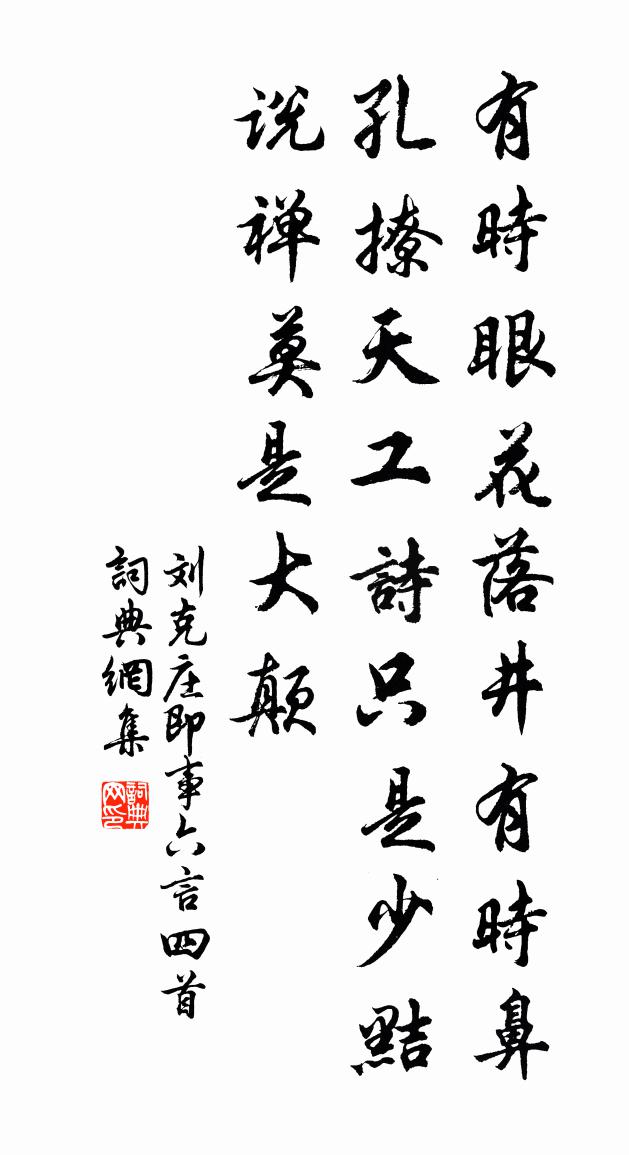 有時眼花落井有時鼻
孔撩天工詩只是少點
说禅莫是大颠
刘克庄即事六言四首
詞典網集
詞典
网印